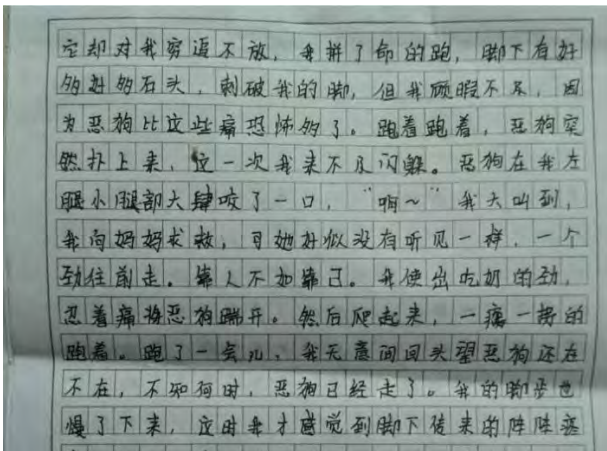 它却对我穷追不放，我拼了命的跑，脚下有好
多好多石头，刺破我的脚，但我顾暇不及，因
为恶狗比这些痛恐怖多了。跑着跑着，恶狗突
然扑上来，这一次我来不及闪躲。恶狗在我左
腿小腿部大肆咬了一口，“啊～”我大叫到，
我向妈妈求救，可她好似没有听见一样，一个
劲往前走。靠人不如靠己。我使出吃奶的劲，
忍着痛将恶狗踹开。然后爬起来，一瘸一拐的
跑着。跑了一会儿，我无意间回头望恶狗还在
不在，不知何时，恶狗已经走了。我的脚步也
慢了下来，这时我才感觉到脚下传来的阵阵疼